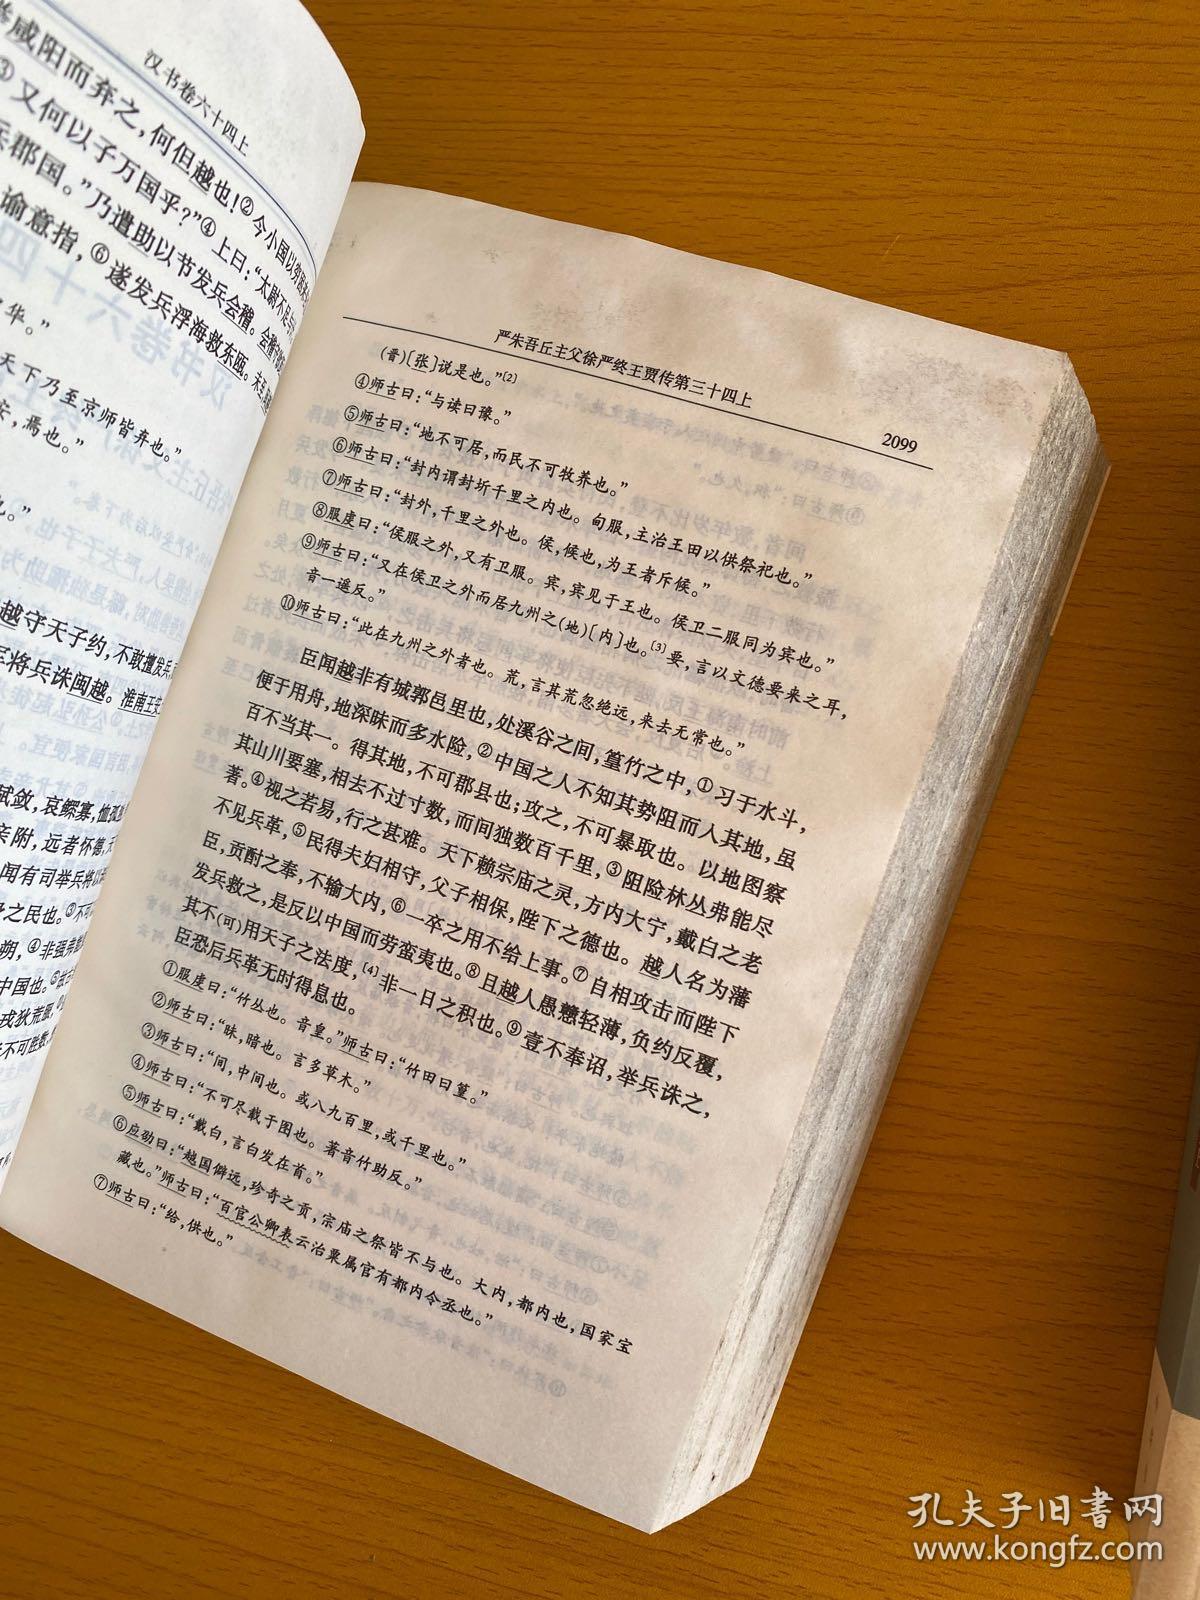 汉书卷六十四上
咸阳而弃之，何但越也！②今小国以穷困
③又何以子万国乎？”④上曰：“太尉不足与
兵郡国。”乃遣助以节发兵会稽。会稽守
谕意指，⑥遂发兵浮海救东瓯。未至，
华。”
天下乃至京师皆弃也。”
安，焉也。”
也。”
越守天子约，不敢擅发兵，
军将兵诛闽越。淮南王安
赋敛，哀鳏寡，恤孤
亲附，远者怀德，
闻有司举兵将以
之民也。③不可
朔，④非强弗
中国也。⑤故
戎狄荒服，
不可胜数，
严朱吾丘主父徐严终王贾传第三十四上
2099
(晋)〔张〕说是也。”[2]
④师古曰：“与读曰豫。”
⑤师古曰：“地不可居，而民不可牧养也。”
⑥师古曰：“封内谓封圻千里之内也。甸服，主治王田以供祭祀也。”
⑦师古曰：“封外，千里之外也。侯，候也，为王者斥候。”
⑧服虔曰：“侯服之外，又有卫服。宾，宾见于王也。侯卫二服同为宾也。”
⑨师古曰：“又在侯卫之外而居九州之(地)〔内〕也。[3]要，言以文德要来之耳，
音一遥反。”
⑩师古曰：“此在九州之外者也。荒，言其荒忽绝远，来去无常也。”
臣闻越非有城郭邑里也，处溪谷之间，篁竹之中，①习于水斗，
便于用舟，地深昧而多水险，②中国之人不知其势阻而入其地，虽
百不当其一。得其地，不可郡县也；攻之，不可暴取也。以地图察
其山川要塞，相去不过寸数，而间独数百千里，③阻险林丛弗能尽
著。④视之若易，行之甚难。天下赖宗庙之灵，方内大宁，戴白之老
不见兵革，⑤民得夫妇相守，父子相保，陛下之德也。越人名为藩
臣，贡酎之奉，不输大内，⑥一卒之用不给上事。⑦自相攻击而陛下
发兵救之，是反以中国而劳蛮夷也。⑧且越人愚戆轻薄，负约反覆，
其不(可)用天子之法度，[4]非一日之积也。⑨壹不奉诏，举兵诛之，
臣恐后兵革无时得息也。
①服虔曰：“竹丛也。音皇。”师古曰：“竹田曰篁。”
②师古曰：“昧，暗也。言多草木。”
③师古曰：“间，中间也。或八九百里，或千里也。”
④师古曰：“不可尽载于图也。著音竹助反。”
⑤师古曰：“戴白，言白发在首。”
⑥应劭曰：“越国僻远，珍奇之贡，宗庙之祭皆不与也。大内，都内也，国家宝
藏也。”师古曰：“百官公卿表云治粟属官有都内令丞也。”
⑦师古曰：“给，供也。”
孔夫子旧书网
www.kongfz.com